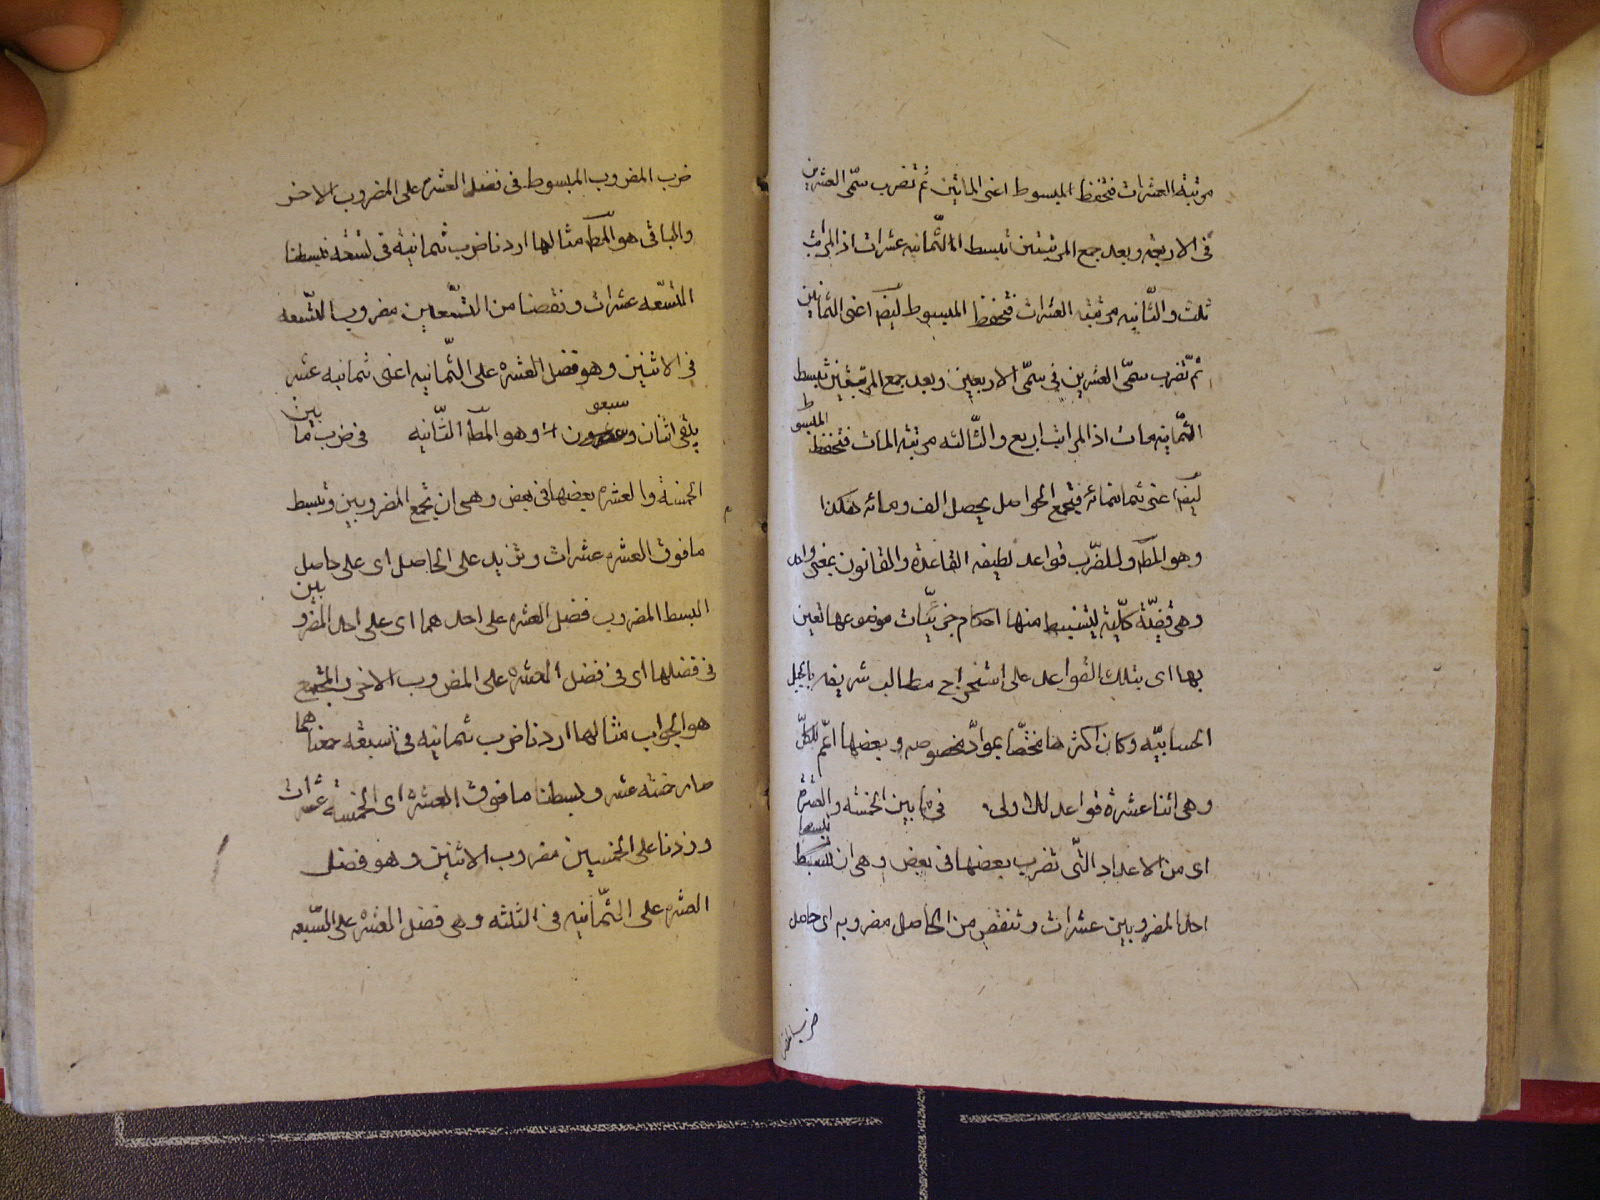 مرتبة العشرات فتحفظ المبسوط اعنى الماتين ثم تضرب سمّى العشرين
فى الاربعة وبعد جمع المرتبتين تبسط الثّمانيه عشرات اذ المراتب
ثلث والثّانيه مرتبة العشرات فتحفظ المبسوط ايضا اعنى الثمانين
ثمّ تضرب سمّى العشرين فى سمّى الاربعين وبعد جمع المرتبتين تبسط
الثمانيه مات اذ المراتب اربع والثّالثه مرتبة المات فتحفظ المبسوط
ايضا اعنى ثمانمائه فتجمع الحواصل يحصل الف ومائه هكذا
وهو المط وللضّرب قواعد لطيفه القاعدة والقانون بمعنى واحد
وهى قضيّة كلّية يستنبط منها احكام جزئيّات موضوعها تعين
بها اى بتلك القواعد على استخراج مطالب شريفه
الحسابيّه وكان اكثرها مختصّا بموادّ مخصوصه وبعضها اعمّ للكلّ
وهى اثنا عشرة قواعد الاولى فى ما بين الخمسه والعشرة
اى من الاعداد الّتى تضرب بعضها فى بعض وهى ان تبسط
احد المضروبين عشرات وتنقص من الحاصل مضروبه اى حاصل
ضرب المضر
ضرب المضروب المبسوط فى فضل العشره على المضروب الاخر
والباقى هو المط مثالها اردنا ضرب ثمانية فى تسعه بسطنا
التسعّه عشرات ونقصنا من التسّعين مضروب التّسعه
فى الاثنين وهو فضل العشره على الثّمانيه اعنى ثمانيه عشر
يبقى اثنان وسبعون وهو المط الثّانيه فى ضرب ما بين
الخمسة والعشره بعضها فى بعض وهى ان تجمع المضروبين وتبسط
ما فوق العشره عشرات وتزيد على الحاصل اى على حاصل
البسط المضروب فضل العشره على احدهما اى على احد المضروبين
فى فضلها اى فى فضل العشره على المضروب الاخر فالمجتمع
هو الجواب مثالها اردنا ضرب ثمانيه فى سبعه جمعناهما
صار خمسه عشر وبسطنا ما فوق العشره اى الخمسة عشرات
وزدنا على الخمسين مضروب الاثنين وهو فضل
العشره على الثّمانيه فى الثلثه وهى فضل العشره على السّبعه